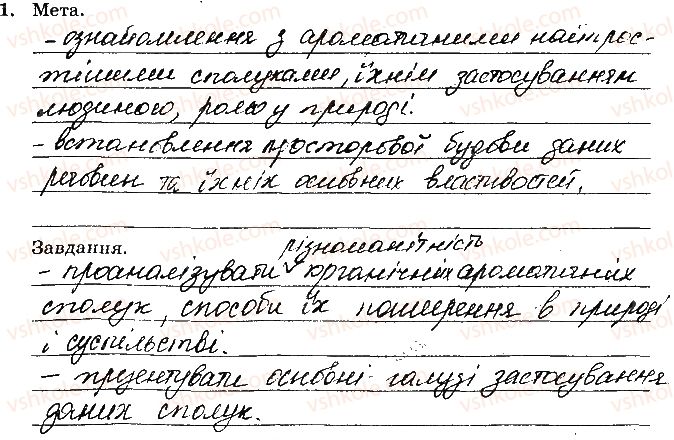 1. Мета.
- ознайомлення з ароматичними найпрос-
тішими сполуками, їхнім застосуванням
людиною, роллю у природі.
- встановлення просторової будови даних
речовин та їхніх основних властивостей.
Завдання. різноманітність
- проаналізувати ✓ органічних ароматичних
сполук, способи їх поширення в природі
і суспільстві.
- презентувати основні галузі застосування
даних сполук.